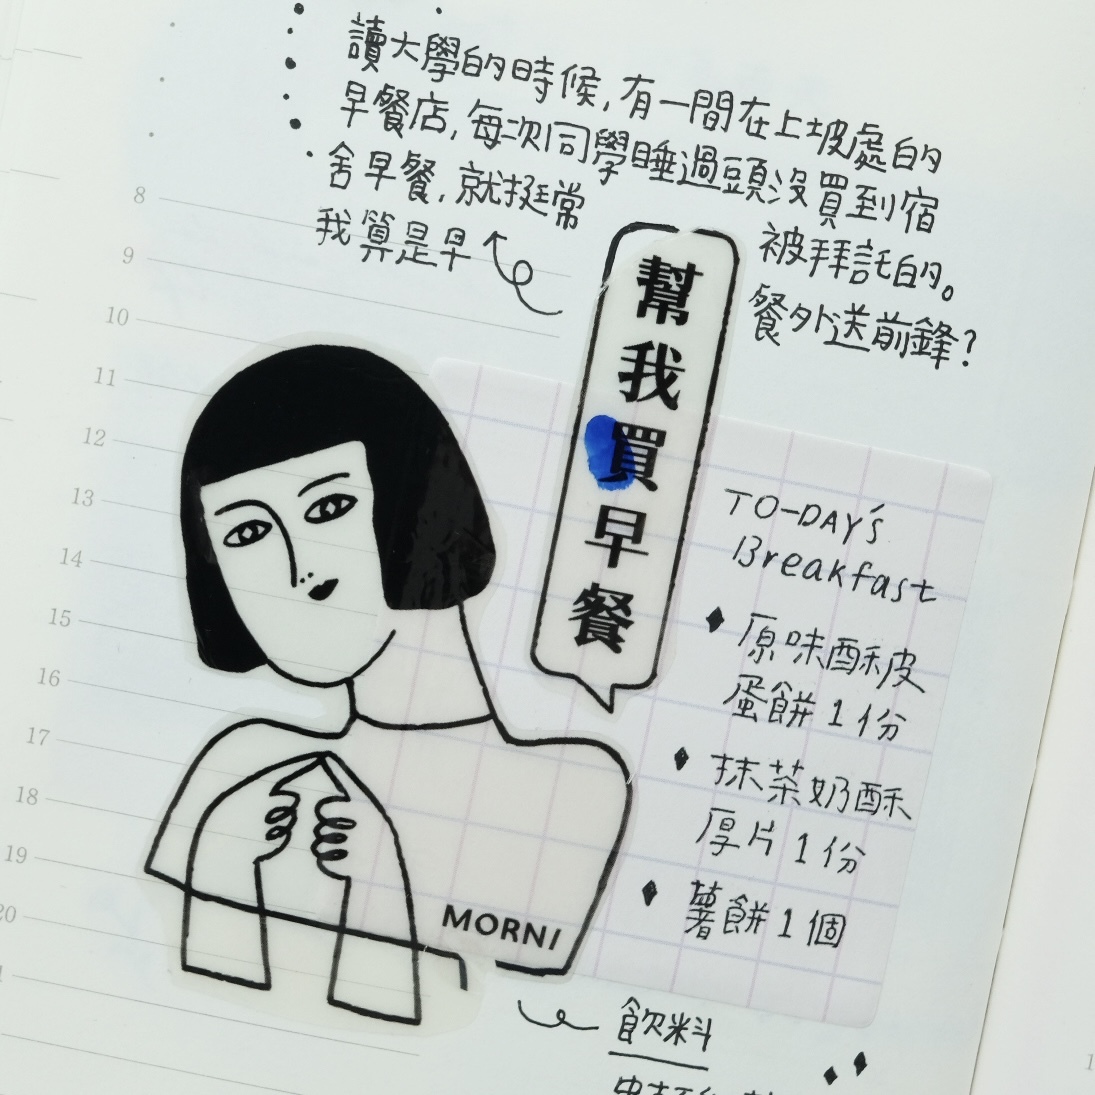 讀大學的時候,有一間在上坡處的
早餐店,每次同學睡過頭沒買到宿
舍早餐,就挺常
被拜託的。
我算是早
餐外送前鋒?
幫我買早餐
8
9
10
11
12
13
14
15
16
17
18
19
20
TO-DAY's
Breakfast
♦ 原味酥皮
蛋餅1份
♦ 抹茶奶酥
厚片1份
♦ 薯餅1個
MORNI
飲料